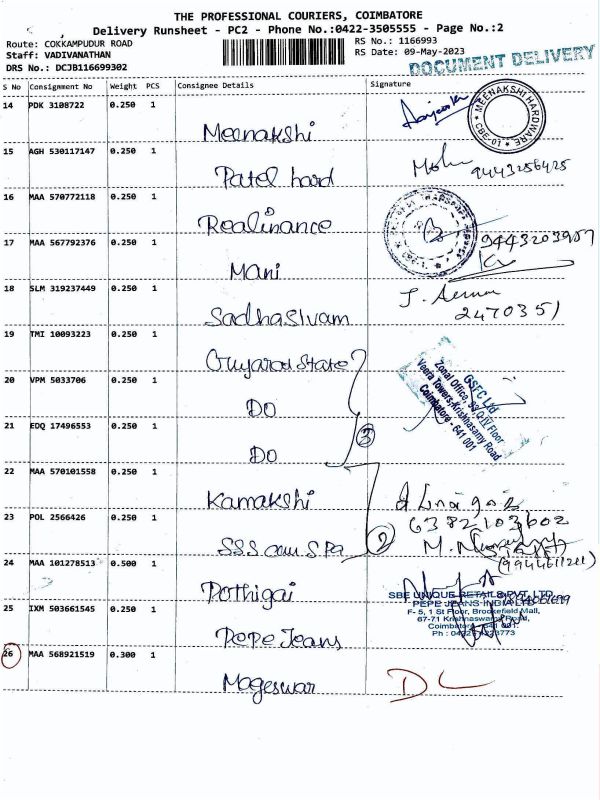 THE PROFESSIONAL COURIERS, COIMBATORE
Delivery Runsheet - PC2 - Phone No.:0422-3505555 - Page No.:2
Route: COKKAMPUDUR ROAD
RS No.: 1166993
Staff: VADIVANATHAN
RS Date: 09-May-2023
DRS No.: DCJB116699302
DOCUMENT DELIVERY
S No Consignment No Weight PCS Consignee Details Signature
14 PDK 3108722 0.250 1
Meenakshi
MEENAKSHI HARDWARE
15 AGH 530117147 0.250 1
Patel hard
9443256425
16 MAA 570772118 0.250 1
Roalinance
17 MAA 567792376 0.250 1
Mani
18 SLM 319237449 0.250 1
Sadhasivam
2470351
19 TMI 10093223 0.250 1
Gujarat State
20 VPM 5033706 0.250 1
DO
GSFC Ltd
Zonal Office,
Coimbatore - 641 001
21 EDQ 17496553 0.250 1
DO
3
22 MAA 570101558 0.250 1
Kamakshi
6382103602
23 POL 2566426 0.250 1
2
24 MAA 101278513 0.500 1
Pothigai
SBE UNIQUE RETAILS PVT. LTD.
PEPE JEANS INDIA LTD
F- 5, 1 St Floor, Brookefield Mall,
67-71 Krishnaswamy Road,
25 IXM 503661545 0.250 1
Pepe Jeans
26 MAA 568921519 0.300 1
Mageswar
DL